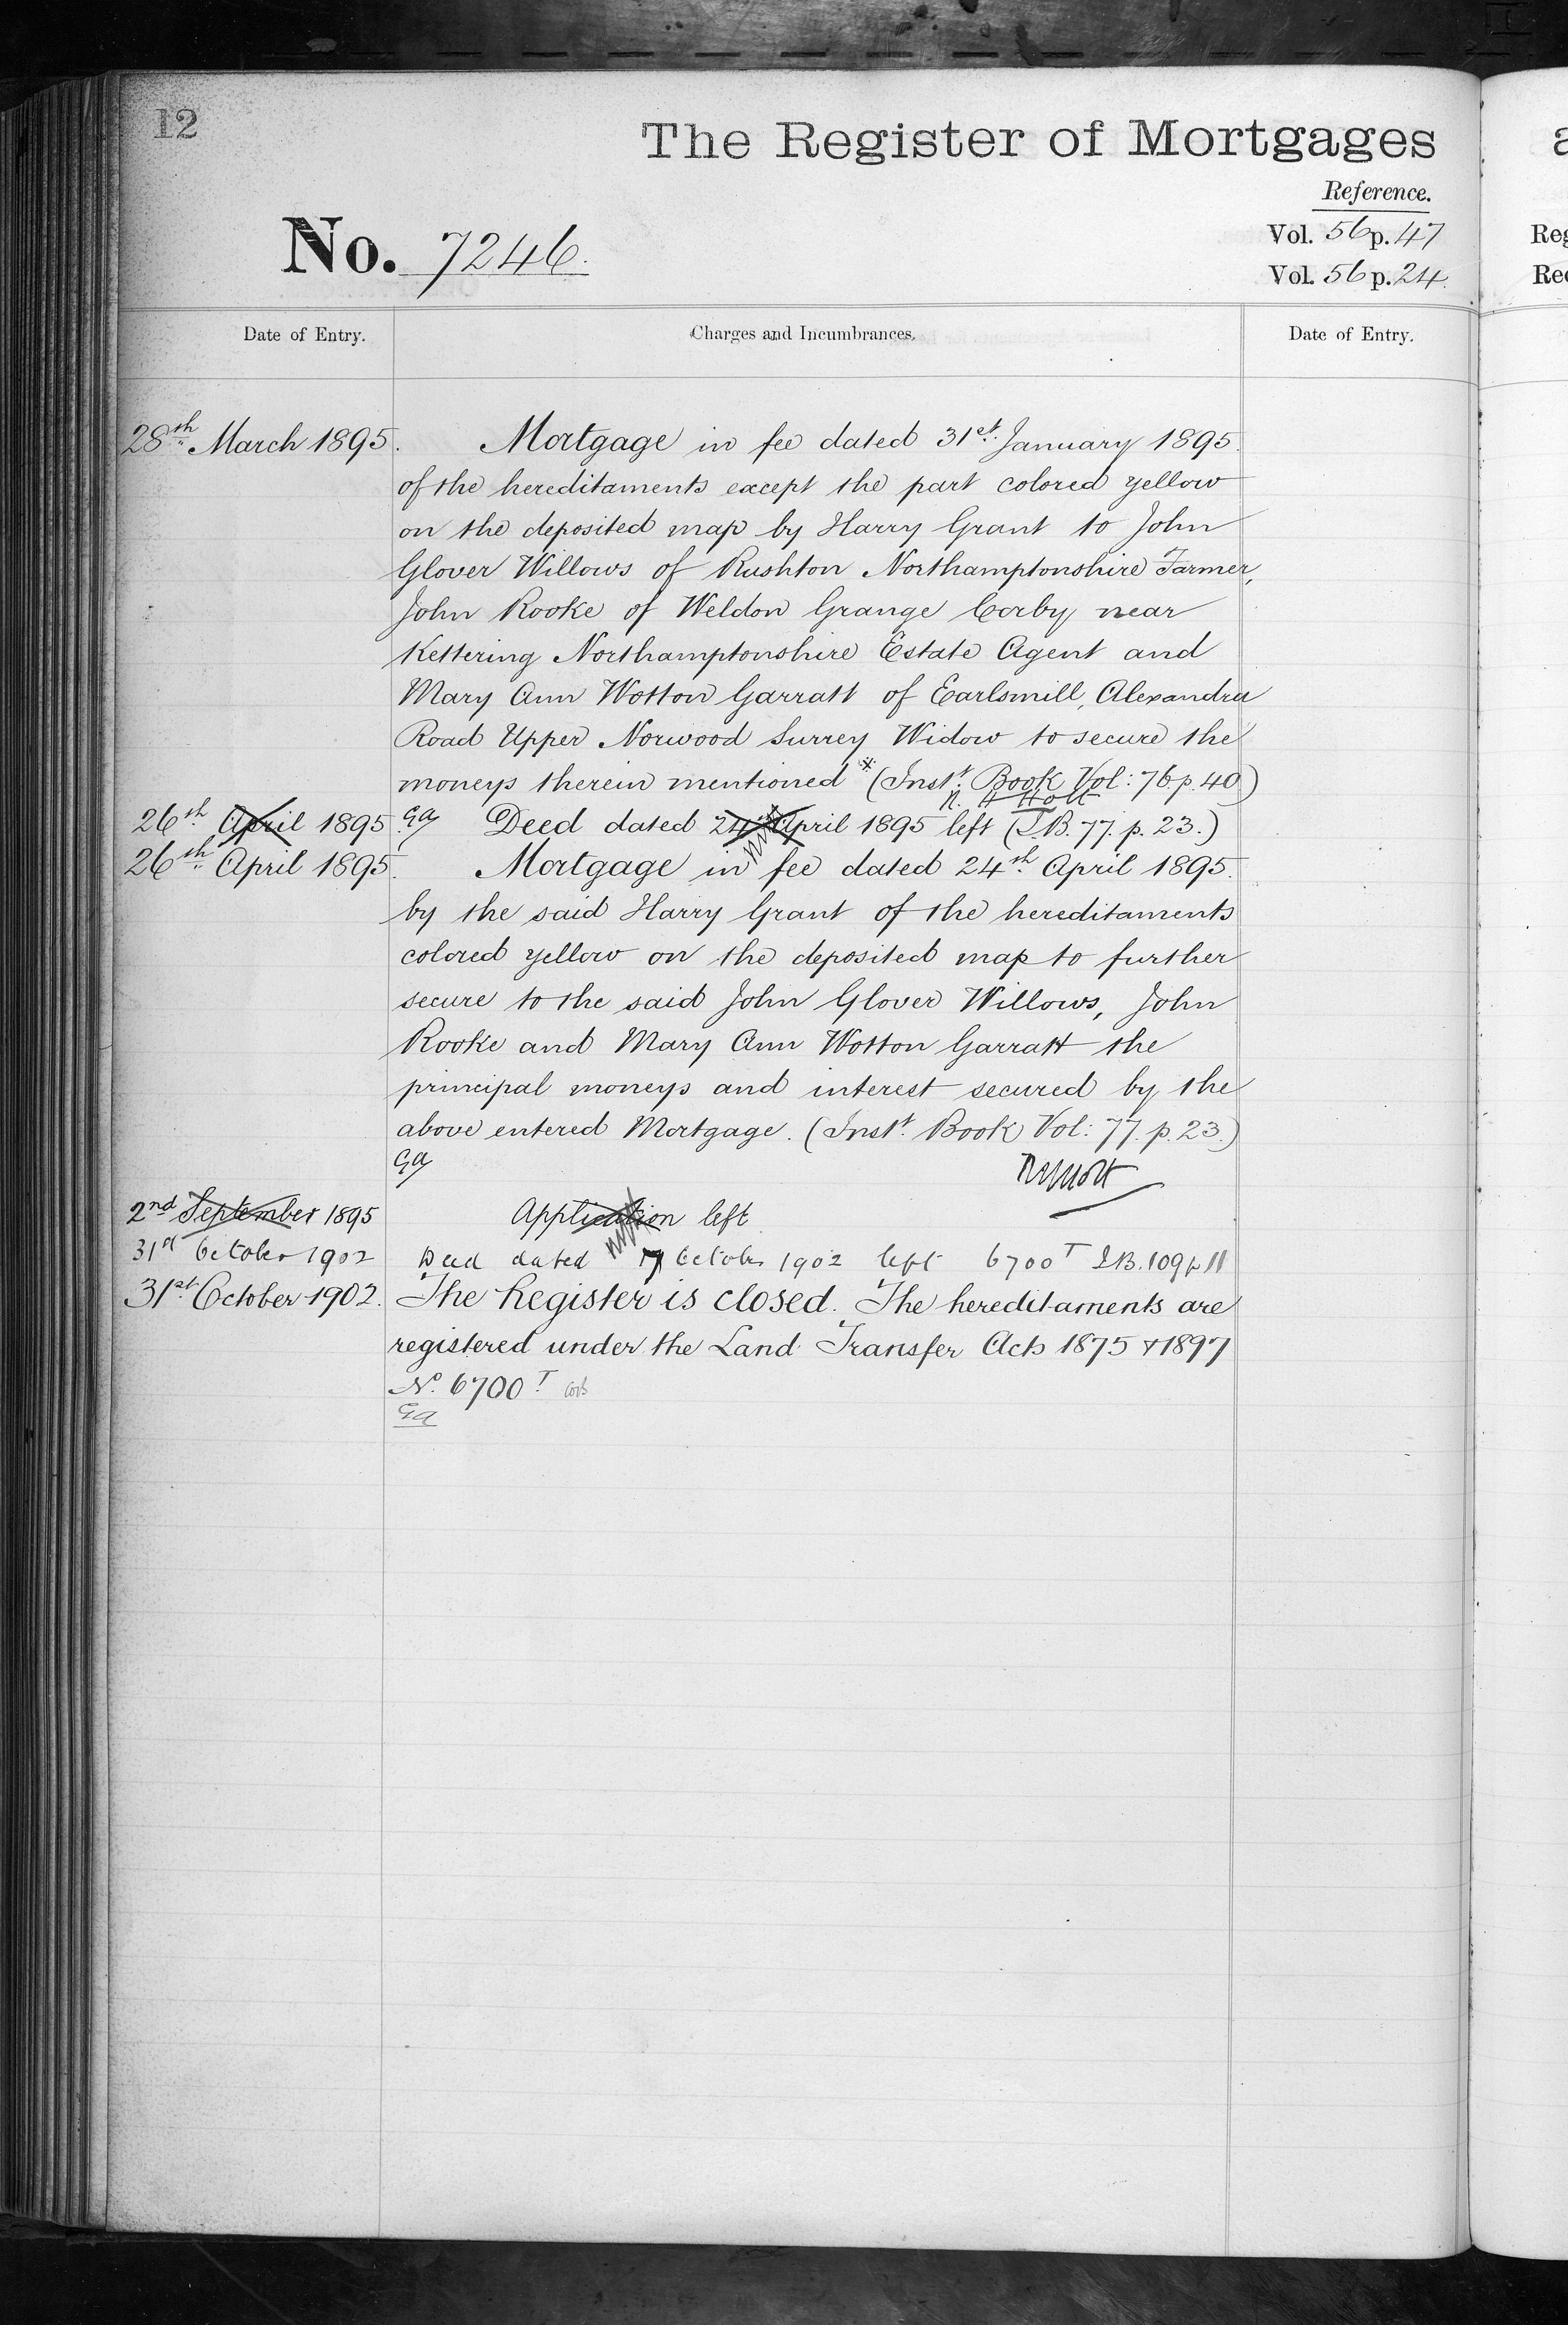 12
The Register of Mortgages
Reference.
No. 7246.
Vol. 56 p. 47
Vol. 56 p. 24.
Date of Entry. Charges and Incumbrances. Date of Entry.
28th March 1895. Mortgage in fee dated 31st January 1895.
of the hereditaments except the part colored yellow
on the deposited map by Harry Grant to John
Glover Willows of Rushton Northamptonshire Farmer,
John Rooke of Weldon Grange Corby near
Kettering Northamptonshire Estate Agent and
Mary Ann Wotton Garratt of Earlsmill, Alexandra
Road Upper Norwood Surrey Widow to secure the
moneys therein mentioned * (Inst. Book Vol: 76 p. 40)
R. H Holt
26th April 1895 Ga Deed dated 24th April 1895 left (I.B. 77. p. 23.)
26th April 1895. Mortgage in fee dated 24th April 1895.
by the said Harry Grant of the hereditaments
colored yellow on the deposited map to further
secure to the said John Glover Willows, John
Rooke and Mary Ann Wotton Garratt the
principal moneys and interest secured by the
above entered Mortgage. (Inst. Book Vol: 77. p. 23.)
Ga
2nd September 1895 Application left
31st October 1902 Deed dated 17 October 1902 left 6700T I.B. 109 p 11
31st October 1902. The Register is closed. The hereditaments are
registered under the Land Transfer Acts 1875 & 1897
No. 6700T
Ga